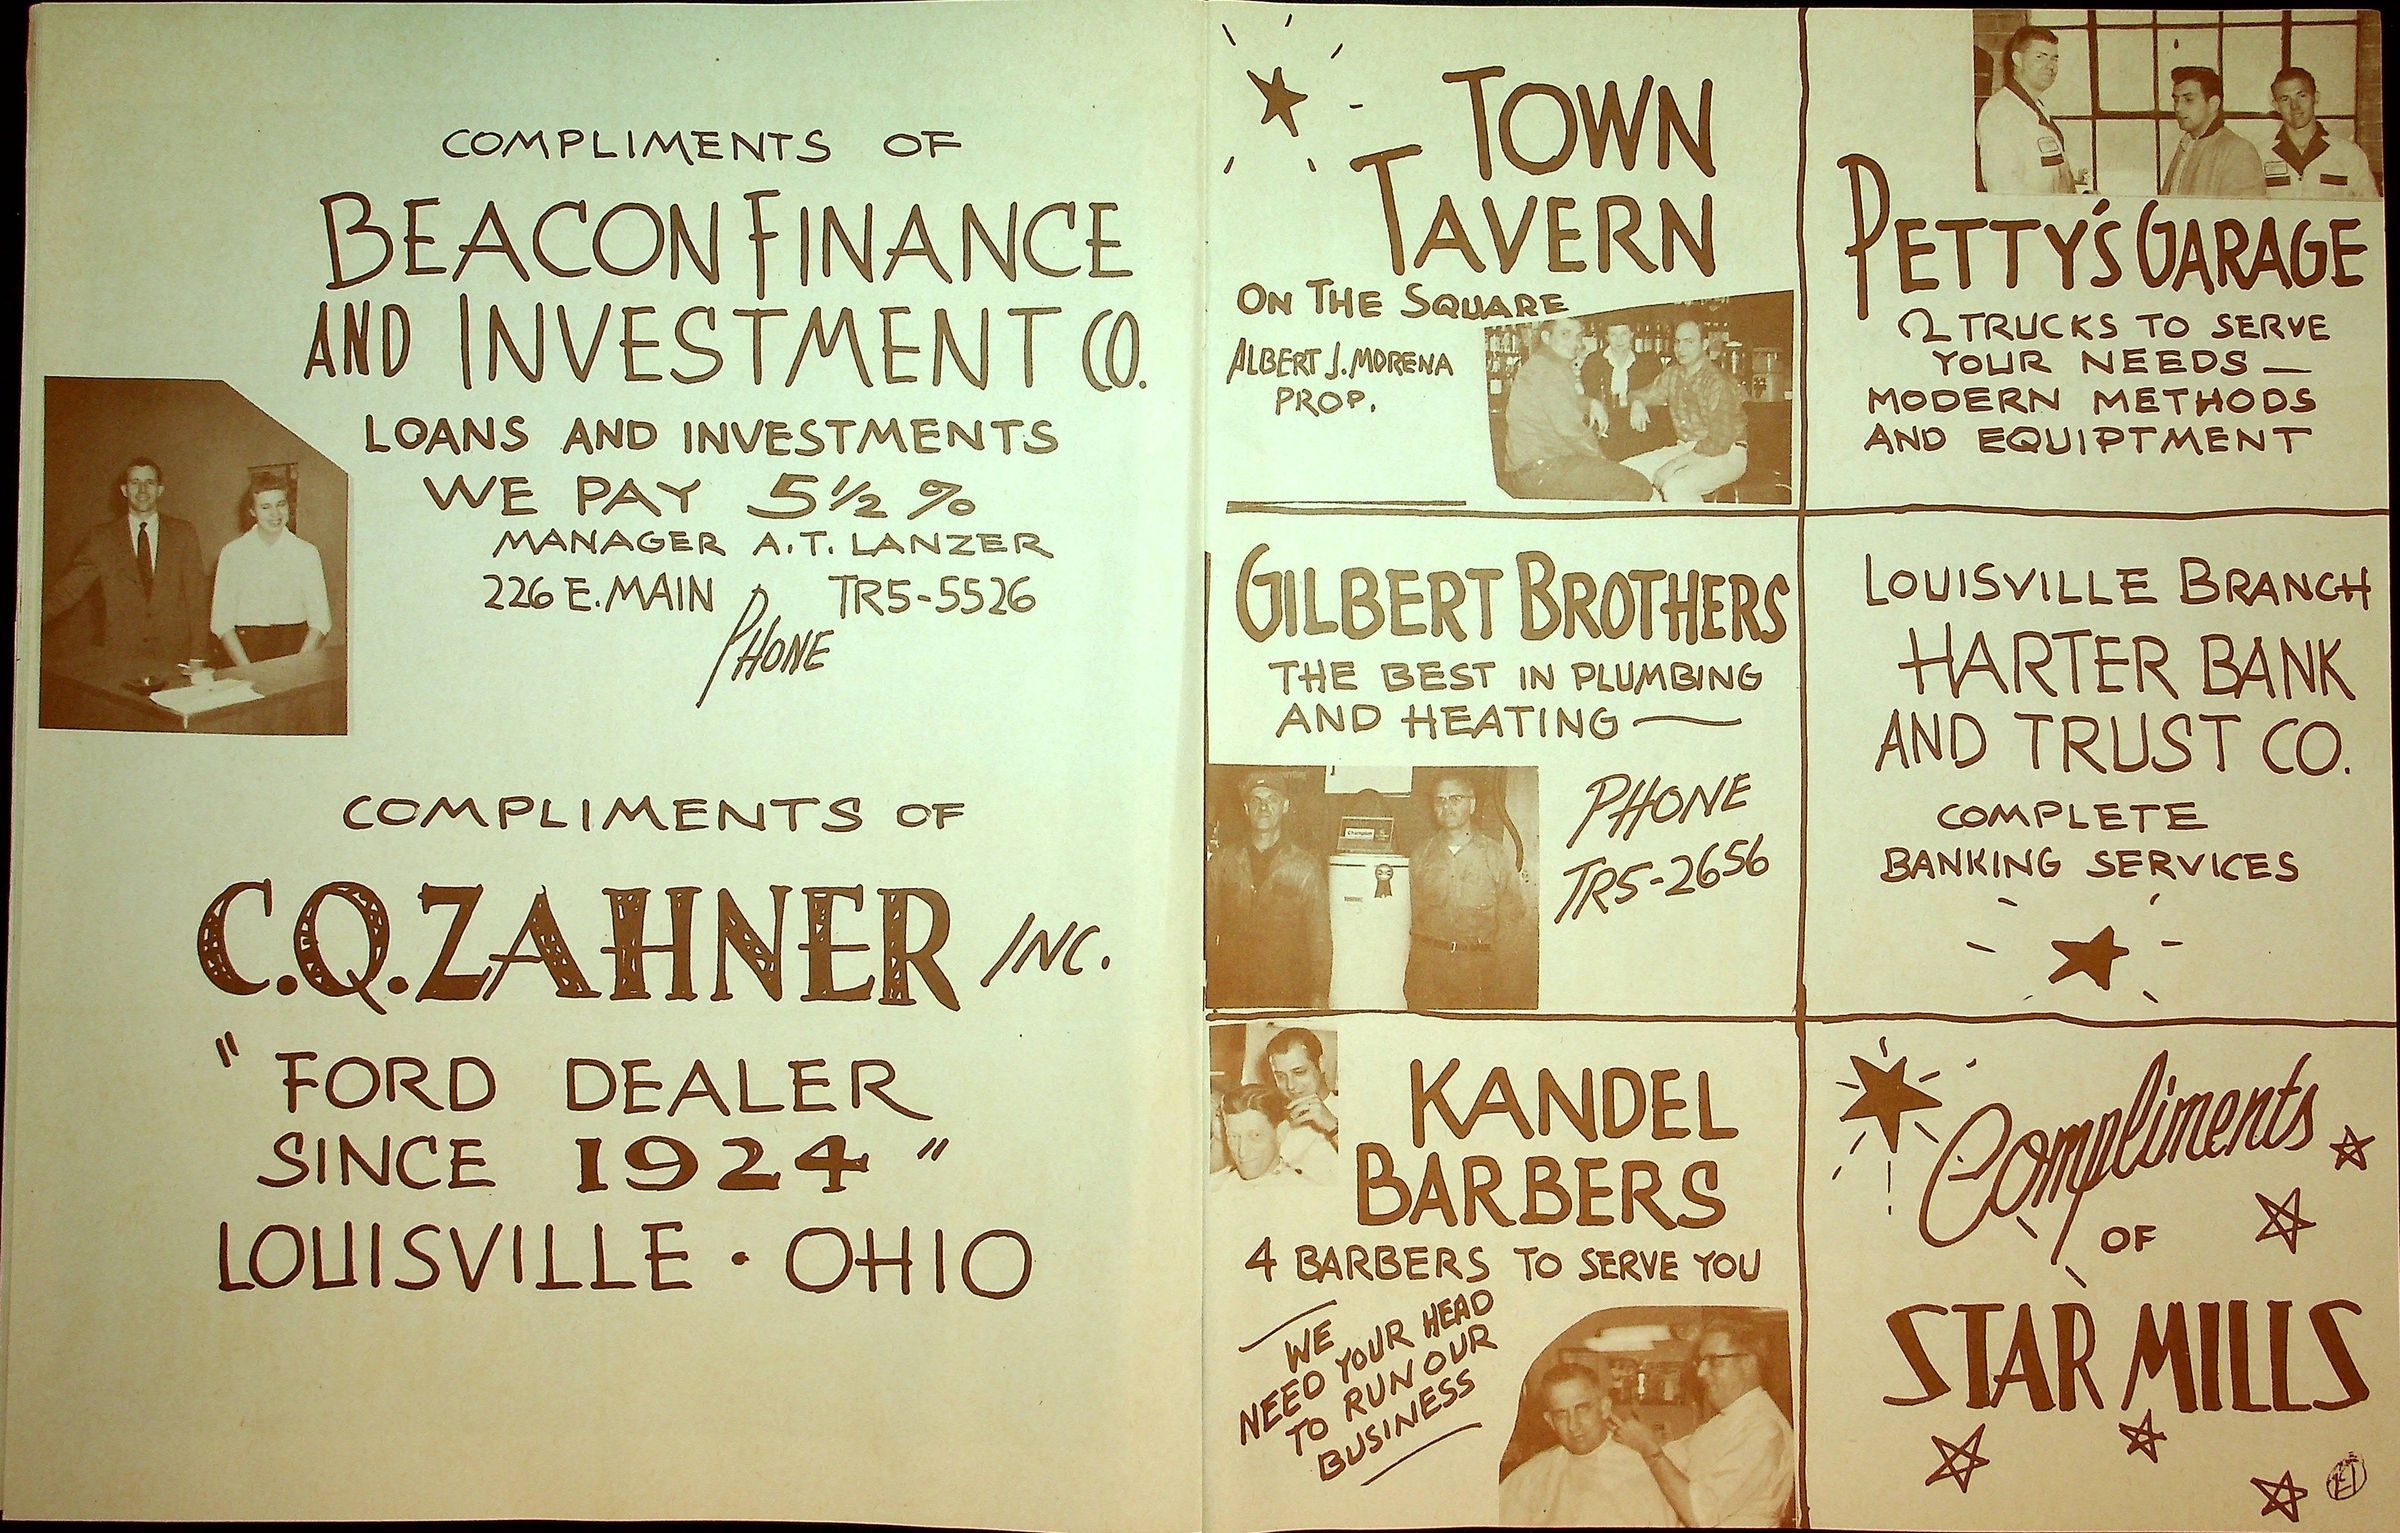 COMPLIMENTS OF
BEACON FINANCE
AND INVESTMENT CO.
LOANS AND INVESTMENTS
WE PAY 5½%
MANAGER A.T. LANZER
226 E. MAIN PHONE TR5-5526
COMPLIMENTS OF
C.Q. ZAHNER INC.
"FORD DEALER
SINCE 1924"
LOUISVILLE · OHIO
TOWN
TAVERN
ON THE SQUARE
ALBERT J. MORENA
PROP.
PETTY'S GARAGE
2 TRUCKS TO SERVE
YOUR NEEDS —
MODERN METHODS
AND EQUIPTMENT
GILBERT BROTHERS
THE BEST IN PLUMBING
AND HEATING —
Champion
PHONE
TR5-2656
LOUISVILLE BRANCH
HARTER BANK
AND TRUST CO.
COMPLETE
BANKING SERVICES
KANDEL
BARBERS
4 BARBERS TO SERVE YOU
WE
NEED YOUR HEAD
TO RUN OUR
BUSINESS
Compliments
OF
STAR MILLS